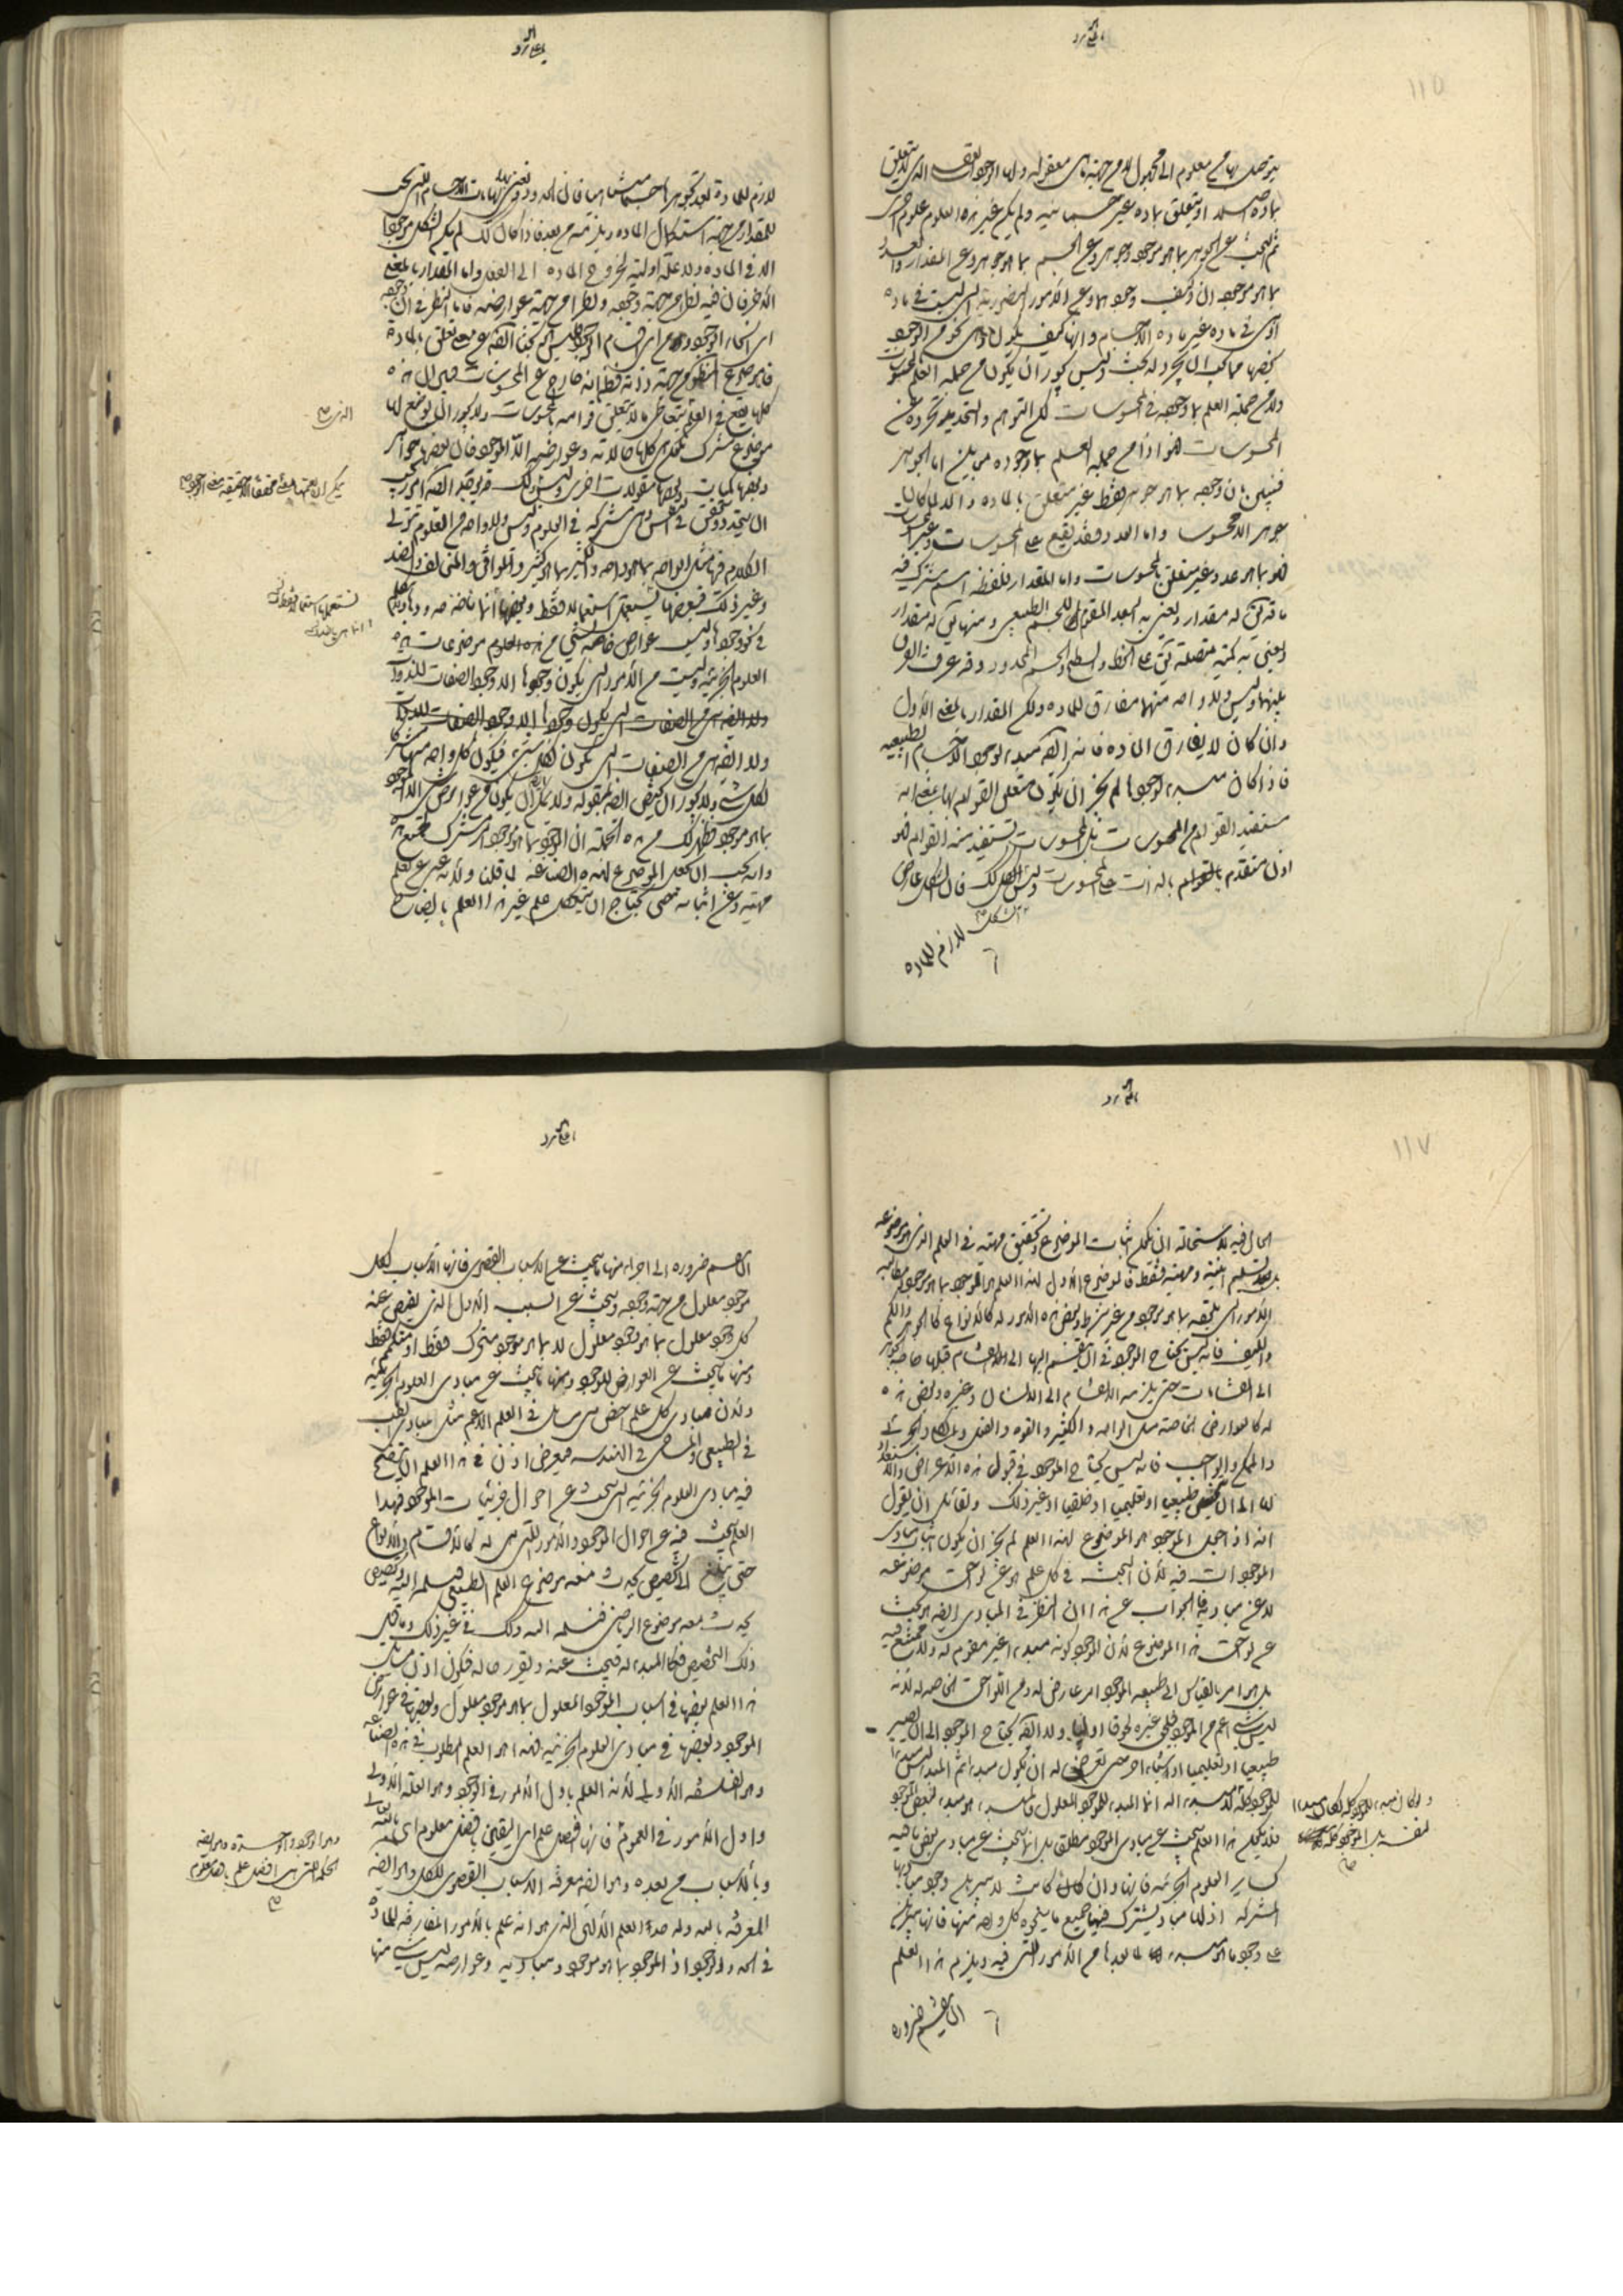 ١١٥
يتوصل بها من معلوم الى مجهول لا من جهة ما هي معقولة ولها الوجود العقلي الذي لا يتعلق
بمادة اصلا او يتعلق بمادة غير جسمانية ولم يكن غير هذه العلوم علوم اخرى
ثم البحث عن الجوهر بما هو موجود وجوهر وعن الجسم بما هو جوهر وعن المقدار والعدد
بما هو موجودان وكيف وجودهما وعن الامور الصورية التي ليست في مادة
او هي في مادة غير مادة الاجسام وانها كيف يكون واي نحو من الوجود
يخصها فما يجب ان يجرد له بحث وليس يجوز ان يكون من جملة العلم بالمحسوسات
ولا من جملة العلم بما وجوده في المحسوسات لكن التوهم والتحديد تجرده عن
المحسوسات فهو اذا من جملة العلم بما وجوده مباين اما الجوهر
فتبين ان وجوده بما هو جوهر فقط غير متعلق بالمادة والا لما كان
جوهر الا محسوسا واما العدد فقد يقع على المحسوسات وغير المحسوسات
فهو بما هو عدد غير متعلق بالمحسوسات واما المقدار فلفظه اسم مشترك فيه
ما قد يقال له مقدار ويعني به البعد المقوم للجسم الطبيعي ومنها يقال له مقدار
ويعني به كمية متصلة يقال على الخط والسطح والجسم المحدود وقد عرفت الفرق
بينهما وليس ولا واحد منهما مفارق للمادة ولكن المقدار بالمعنى الاول
وان كان لا يفارق المادة فانه ايضا مبدء لوجود الاجسام الطبيعية
فاذا كان مبدء لوجودها لم يجز ان يكون متعلق القوام بها بمعنى انه
مستفيد القوام من المحسوسات بل المحسوسات تستفيد منه القوام فهو
اذن متقدم بالذات على المحسوسات وليس الشكل كذلك فان الشكل عارض
لازم للمادة
لازم للمادة بعد تجوهرها جسما متناهيا فان الحدود
للمقدار من جهة استكمال المادة ويلزمه من بعد فاذا كان كذلك لم يكن الشكل موجودا
الا في المادة ولا علة اولية لخروج المادة الى الفعل واما المقدار بالمعنى
الاخر فان فيه نظرا من جهة وجوده ونظرا من جهة عوارضه فاما النظر في ان وجوده
اي انحاء الوجود هو ومن اي اقسام الموجود فليس بحثا ايضا عن معنى متعلق بالمادة
فاما موضوع المنطق من جهة ذاته فظاهر انه خارج عن المحسوسات فبين ان هذه
كلها يقع في العلم يتعاطى ما لا يتعلق قوامه بالمحسوسات ولا يجوز ان يوضع لها
موضوع مشترك تكون هي كلها حالاته وعوارضه الا الموجود فان بعضها جواهر
وبعضها كميات وبعضها مقولات اخرى وليس
وكذلك قد يوجد ايضا امور يجب
ان يتحدد ويتحقق في النفس وهي مشتركة في العلوم وليس ولا واحد من العلوم يتولى
الكلام فيها مثل الواحد بما هو واحد والكثير بما هو كثير والموافق والمخالف والضد
وغير ذلك فبعضها يستعملها استعمالا فقط وبعضها انما ياخذ حدودها ولا يتكلم
في نحو وجودها وليست عوارض خاصة لشيء من موضوعات هذه
العلوم الجزئية وليست من الامور التي يكون وجودها الا وجود الصفات للذوات
ولا ايضا هي من الصفات التي تكون لكل شيء فيكون كل واحد منها مشتركا
لكل شيء ولا يجوز ان يختص ايضا بمقولة ولا يمكن ان يكون من عوارض شيء الا الموجود
بما هو موجود فظهر لك من هذه الجملة ان الموجود بما هو موجود امر مشترك لجميع هذه
وانه يجب ان يجعل الموضوع لهذه الصناعة لما قلنا ولانه غني عن تعلم
ماهيته وعن اثباته حتى يحتاج ان يتكفل علم غير هذا العلم بايضاح
١١٧
الحال فيه لاستحالة ان يكون اثبات الموضوع وتحقيق ماهيته في العلم الذي هو موضوعه
بل تسليم انيته وماهيته فقط فالموضوع الاول لهذا العلم هو الموجود بما هو موجود ومطالبه
الامور التي تلحقه بما هو موجود من غير شرط وبعض هذه الامور له كالانواع كالجوهر والكم
والكيف فانه ليس يحتاج الموجود في ان ينقسم اليها الى الانقسام قبلها حاجة الجوهر
الى انقسامات حتى يلزمه الانقسام الى الانسان وغيره وبعض هذه
له كالعوارض الخاصة مثل الواحد والكثير والقوة والفعل والكلي والجزئي
والممكن والواجب فانه ليس يحتاج الموجود في قبول هذه الاعراض والاستعداد
لها الى ان يتخصص طبيعيا او تعليميا او خلقيا او غير ذلك ولقائل ان يقول
انه اذا جعل الموجود هو الموضوع لهذا العلم لم يجز ان يكون اثبات مبادي
الموجودات فيه لان البحث في كل علم هو عن لواحق موضوعه
لا عن مباديه فالجواب عن هذا ان النظر في المبادي ايضا هو بحث
عن لواحق هذا الموضوع لان الموجود كونه مبدء غير مقوم له ولا ممتنع فيه
بل هو امر بالقياس الى طبيعة الموجود امر عارض له ومن اللواحق الخاصة له لانه
ليس شيء اعم من الموجود فيلحق غيره لحوقا اوليا ولا ايضا يحتاج الموجود الى ان يصير
طبيعيا او تعليميا او شيئا آخر حتى يعرض له ان يكون مبدء ثم المبدء ليس مبدء
للموجود كله
انما المبدء مبدء للموجود المعلول فالمبدء هو مبدء لبعض الموجود
فلا يكون هذا العلم يبحث عن مبادي الموجود مطلقا بل انما يبحث عن مبادي بعض ما فيه
كساير العلوم الجزئية فانها وان كانت لا تبرهن وجود مباديها
المشتركة اذ لها مباد يشترك فيها جميع ما ينحوه كل واحد منها فانها تبرهن
على وجود ما هو مبدء لما بعدها من الامور التي فيه ويلزم هذا العلم
ان ينقسم ضرورة
ان ينقسم ضرورة الى اجزاء منها ما يبحث عن الاسباب القصوى فانها الاسباب لكل
موجود معلول من جهة وجوده ويبحث عن السبب الاول الذي يفيض عنه
كل وجود معلول بما هو وجود معلول لا بما هو موجود متحرك فقط او متكمم فقط
ومنها ما يبحث عن العوارض للموجود ومنها ما يبحث عن مبادي العلوم الجزئية
ولان مبادي كل علم اخص هي مسائل في العلم الاعم مثل مبادي الطب
في الطبيعي والمساحي في الهندسة فيعرض اذن في هذا العلم ان يتضح
فيه مبادي العلوم الجزئية التي تبحث عن احوال جزئيات الموجود فهذا
العلم يبحث فيه عن احوال الموجود والامور التي هي له كالاقسام والانواع
حتى يبلغ الى تخصيص يحدث معه موضوع العلم الطبيعي فيسلمه اليه وتخصيص
يحدث معه موضوع الرياضي فيسلمه اليه وكذلك في غير ذلك وما قبل
ذلك التخصيص فكالمبدء له فيبحث عنه ويقرر حاله فيكون اذن مسائل
هذا العلم بعضها في اسباب الموجود المعلول بما هو موجود معلول وبعضها في عوارض
الموجود وبعضها في مبادي العلوم الجزئية فهذا هو العلم المطلوب في هذه الصناعة
وهو الفلسفة الاولى لانه العلم باول الامور في الوجود وهو العلة الاولى
واول الامور في العموم
فانها افضل علم اي اليقين بافضل معلوم اي بالله تعالى
وبالاسباب من بعده وهو ايضا معرفة الاسباب القصوى للكل وهو ايضا
المعرفة بالله وله حد العلم الالهي الذي هو انه علم بالامور المفارقة للمادة
في الحد والوجود اذ الموجود بما هو موجود ومباديه وعوارضه ليس شيء منها
وهو الوجود والوحدة وهو ايضا
الحكمة التي هي افضل علم بافضل معلوم